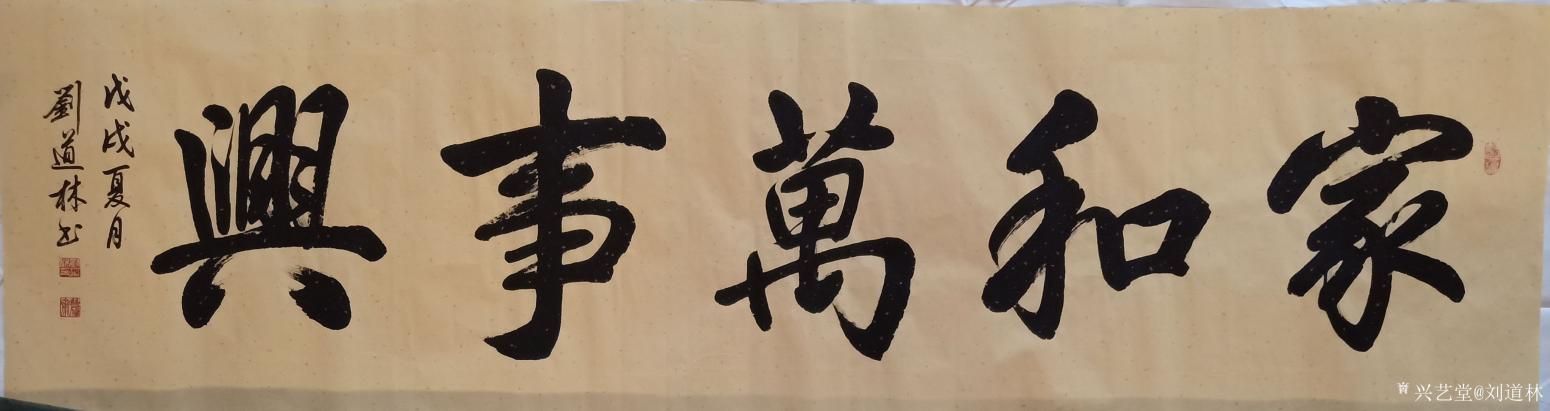 家和萬事興
戊戌夏月
劉道林书
兴艺堂@刘道林